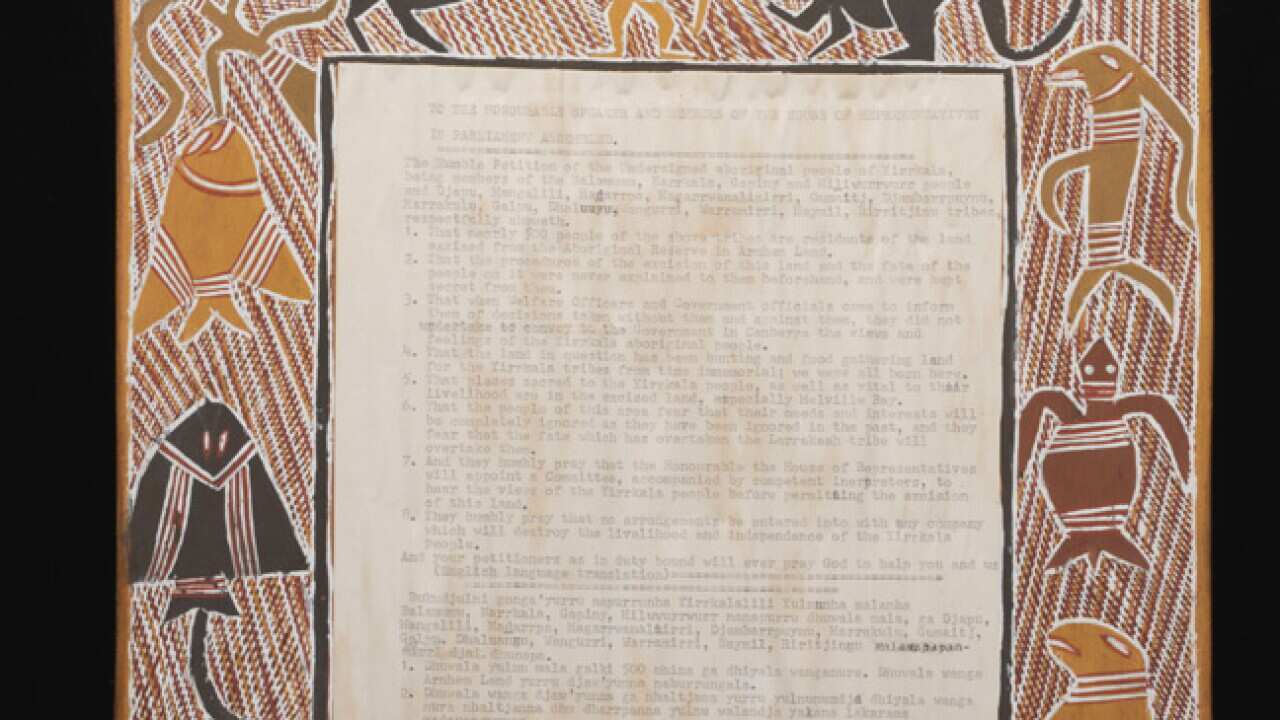 TO THE HONOURABLE SPEAKER AND MEMBERS OF THE HOUSE OF REPRESENTATIVES
IN PARLIAMENT ASSEMBLED.
The Humble Petition of the Undersigned aboriginal people of Yirrkala,
being members of the Balamumu, Narrkala, Gapiny and Miliwurrwurr people
and Djapu, Mangalili, Madarrpa, Magarrwanalinirri, Gumaitj, Djambarrpuynu,
Marrakulu, Galpu, Dhaluayu, Wangurri, Warramirri, Naymil, Rirritjingu tribes,
respectfully sheweth.
1. That nearly 500 people of the above tribes are residents of the land
excised from the Aboriginal Reserve in Arnhem Land.
2. That the procedures of the excision of this land and the fate of the
people on it were never explained to them beforehand, and were kept
secret from them.
3. That when Welfare Officers and Government officials came to inform
them of decisions taken without them and against them, they did not
undertake to convey to the Government in Canberra the views and
feelings of the Yirrkala aboriginal people.
4. That the land in question has been hunting and food gathering land
for the Yirrkala tribes from time immemorial; we were all born here.
5. That places sacred to the Yirrkala people, as well as vital to their
livelihood are in the excised land, especially Melville Bay.
6. That the people of this area fear that their needs and interests will
be completely ignored as they have been ignored in the past, and they
fear that the fate which has overtaken the Larrakeah tribe will
overtake them.
7. And they humbly pray that the Honourable the House of Representatives
will appoint a Committee, accompanied by competent interpreters, to
hear the views of the Yirrkala people before permitting the excision
of this land.
8. They humbly pray that no arrangements be entered into with any company
which will destroy the livelihood and independence of the Yirrkala
people.
And your petitioners as in duty bound will ever pray God to help you and us
(English language translation)
ganga'yurru napurrunha Yirrkalalili Yulnunha malanha
Balamumu, Narrkala, Gapiny, Miliwurrwurr nanapurru dhuwala mala, ga Djapu,
Mangalili, Madarrpa, Djambarrpuynu, Marrakulu, Gumaitj,
Galpu, Dhaluangu, Wangurri, Warramirri, Naymil, Riritjingu
1. Dhuwala yulnu mala galki 500 nhina ga dhiyala wanganura. Dhuwala wanga
Arnhem Land yurru djaw'yunna naburrungala.
2. Dhuwala wanga djaw'yunna ga nhaltjana yurru yulnunundja dhiyala wanga
nura nhaltjanna dhu dharrpanna yulnu walandja yakana lakarama